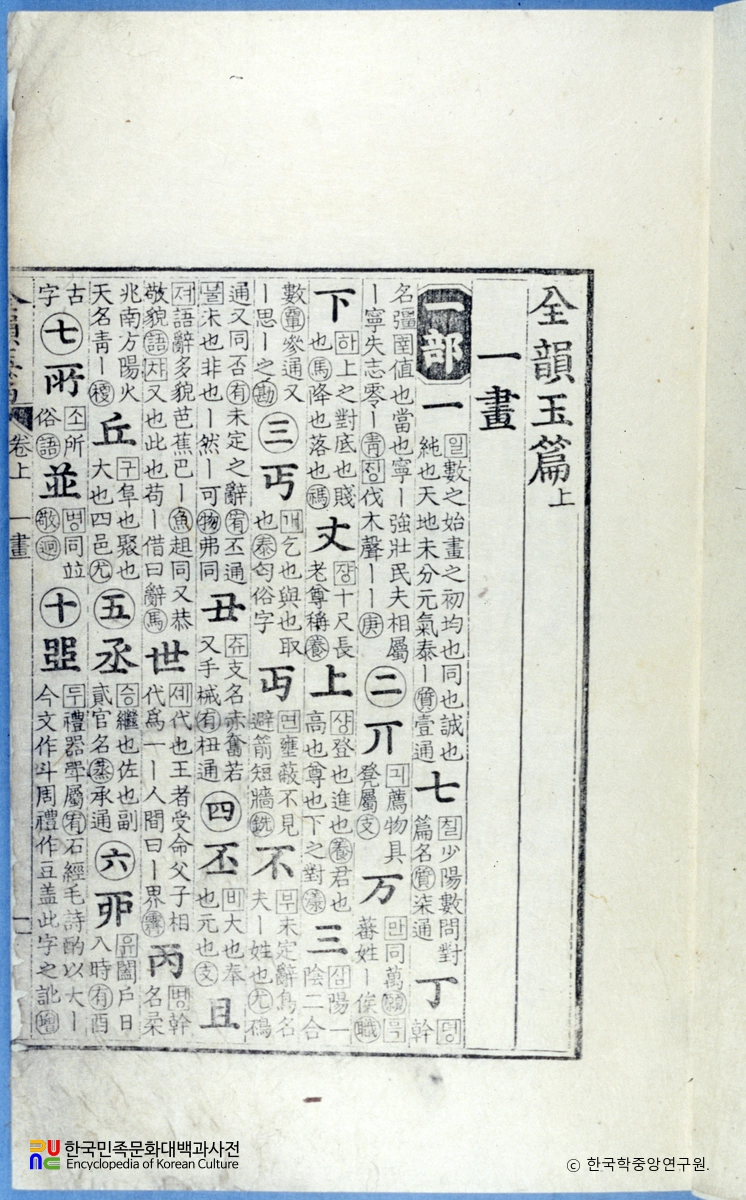 全韻玉篇上
一畫
一部 一 일數之始畫之初均也同也誠也純也天地未分元氣泰丨質壹通 七 칠少陽數問對篇名質柒通 丁 뎡幹
名彊圉値也當也寧丨強壯民夫相屬丨寧失志零丨靑졍伐木聲丨丨庚 二 丌 긔薦物具凳屬支 万 만同萬願믁蕃姓丨俟職
下 하上之對底也賤也馬降也落也禡 丈 쟝十尺長老尊稱養 上 샹登也進也養君也高也尊也下之對漾 三 삼陽一陰二合
數覃參通又丨思丨之勘 三 丐 개乞也與也取也泰匃俗字 丏 면壅蔽不見避箭短牆銑 不 부未定辭鳥名夫丨姓也尤鴀
通又同否有未定之辭宥丕通불未也非也丨然丨可物弗同 丑 츄支名赤奮若又手械有杻通 四 丕 비大也奉也元也支 且
져語辭多貌芭蕉巴丨魚趄同又恭敬貌語챠又也此也苟丨借曰辭馬 世 셰代也王者受命父子相代爲一丨人間曰丨界霽 丙 병幹名柔
兆南方陽火天名靑丨 丘 구阜也聚也大也四邑尤 五 丞 승繼也佐也副貳官名蒸承通 六 丣 유闔戶日入時有酉
古字 七 所 소所俗語 並 병同竝敬迥 十 두禮器斝屬宥石經毛詩酌以大丨今文作斗周禮作豆盖此字之訛
卷上 一畫 一
한국민족문화대백과사전
Encyclopedia of Korean Culture
© 한국학중앙연구원.